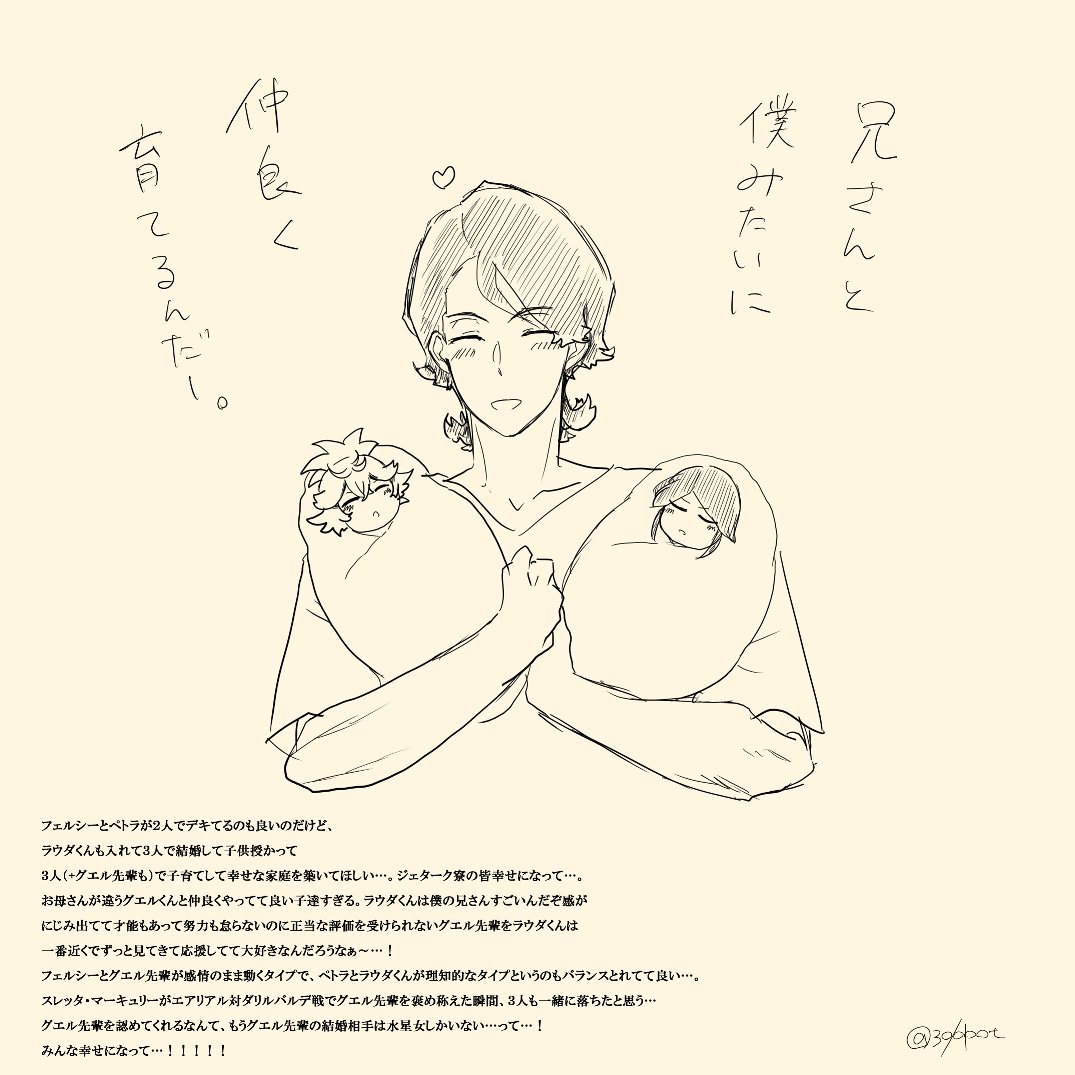 兄さんと
僕みたいに
仲良く
育てるんだー。
フェルシーとペトラが２人でデキてるのも良いのだけど、
ラウダくんも入れて３人で結婚して子供授かって
３人（＋グエル先輩も）で子育てして幸せな家庭を築いてほしい…。ジェターク寮の皆幸せになって…。
お母さんが違うグエルくんと仲良くやってて良い子達すぎる。ラウダくんは僕の兄さんすごいんだぞ感が
にじみ出てて才能もあって努力も怠らないのに正当な評価を受けられないグエル先輩をラウダくんは
一番近くでずっと見てきて応援してて大好きなんだろうなぁ～…！
フェルシーとグエル先輩が感情のまま動くタイプで、ペトラとラウダくんが理知的なタイプというのもバランスとれてて良い…。
スレッタ・マーキュリーがエアリアル対ダリルバルデ戦でグエル先輩を褒め称えた瞬間、３人も一緒に落ちたと思う…
グエル先輩を認めてくれるなんて、もうグエル先輩の結婚相手は水星女しかいない…って…！
みんな幸せになって…！！！！！